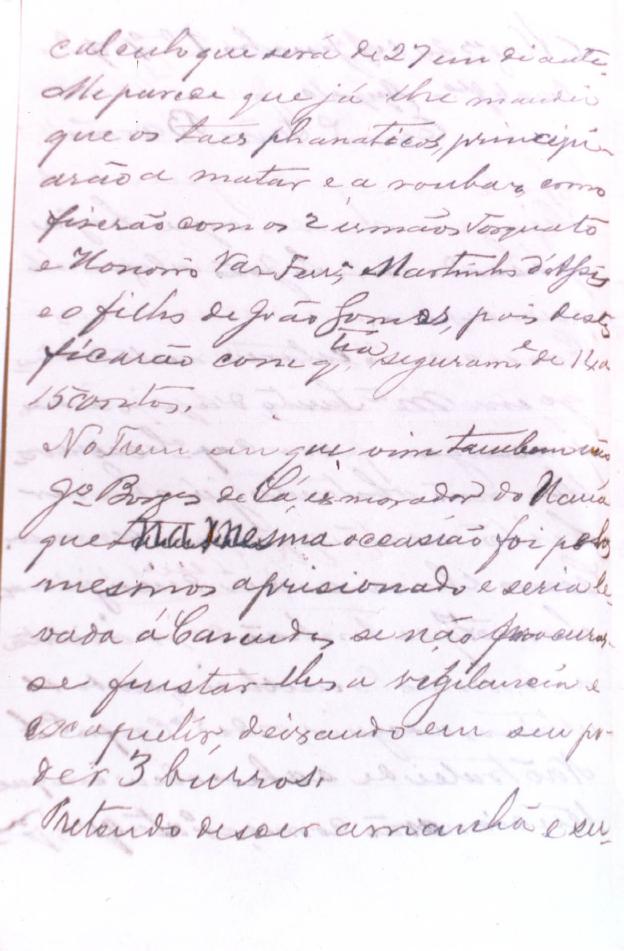 calculo que será de 27 em diante.
Me parece que já lhe mandei
que os taes phanaticos, principi-
arão a matar e a roubar, como
fiserão com os 2 irmãos Torquato
e Honorio Martinho d'Assis
e o filho de João Gomes, pois destes
ficarão com q.tia seguram.e de 12 a
15 contos.
No Trem em que vim tambem veio
J.e Borges de Sá ex morador do
que na mesma occasião foi pelos
mesmos aprisionado e seria le-
vado á Canudos, se não procuras-
se frustar lhes a vigilancia e
escapulir deixando em seu po-
der 3 búrros.
Pretendo descer amanhã e seu-